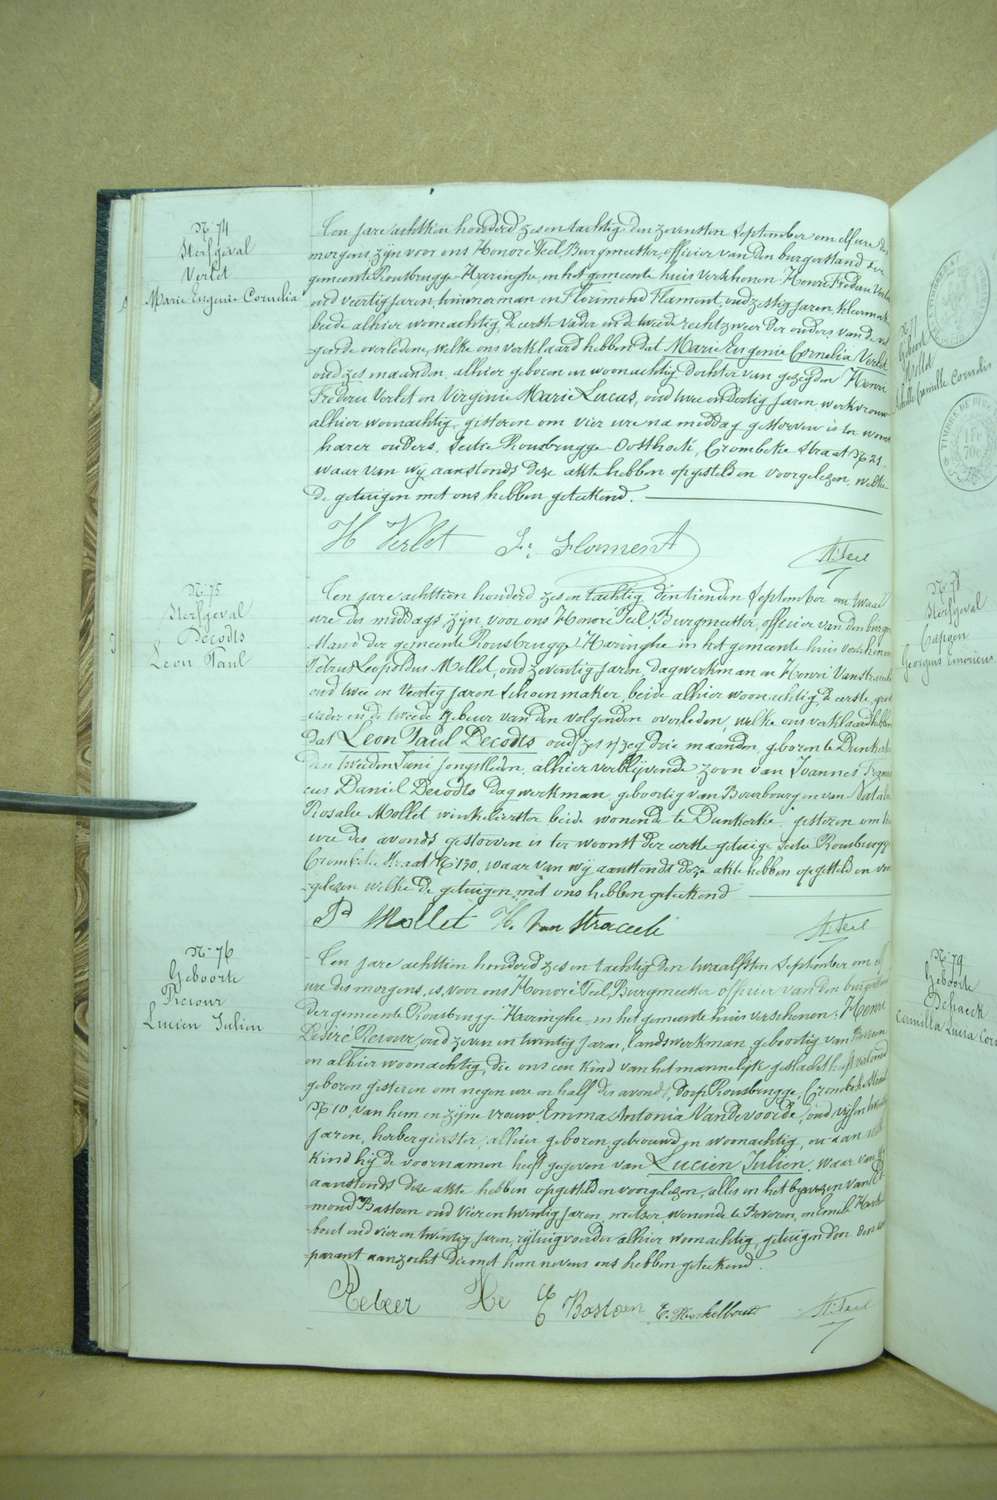 N° 74
Sterfgeval
Verlet
Marie Eugenie Cornelia
Ten jare achttien honderd zes en tachtig den zevensten September om elf ure des
morgens zijn voor ons Honoré Teel Burgmeester, officier van den burgerstand der
gemeente Rousbrugge-Haringhe, in het gemeente huis verschenen Henri Frederic Verlet
oud veertig jaren, timmerman en Florimond Flament, oud zestig jaren, kleermak
beide alhier woonachtig, de eerste vader en de tweede rechtzweer der ouders van de na
gende overledene, welke ons verklaard hebben dat Marie Eugenie Cornelia Verlet
oud zes maanden, alhier geboren en woonachtig, dochter van gezeyden Henri
Frederic Verlet en Virginie Marie Lucas, oud twee en dertig jaren, werkvrouw
alhier woonachtig, gisteren om vier ure na middag gestorven is ter woonst
harer ouders, sectie Rousbrugge-Oosthoek, Crombeke straat N° 21,
waar van wij aanstonds deze akte hebben opgesteld en voorgelezen, welke
de getuigen met ons hebben geteekend.
H Verlet Fl Flament H. Teel
N° 75
Sterfgeval
Decodts
Leon Paul
Ten jare achttien honderd zes en tachtig den tienden September om twaalf
ure des middags zijn voor ons Honoré Teel, Burgmeester, officier van den burger
stand der gemeente Rousbrugge-Haringhe in het gemeente huis verschenen
Petrus Leopoldus Mollet, oud zeventig jaren, dagwerkman en Henri Vanstraceele
oud twee en veertig jaren schoenmaker, beide alhier woonachtig, de eerste groot
vader en de tweede gebuur van den volgenden overleden, welke ons verklaard hebben
dat Leon Paul Decodts oud drie maanden, geboren te Dunkerke
den tweeden Juni jongstleden, alhier verblijvende zoon van Joannes Francis
cus Daniel Decodts dagwerkman, geboortig van Bourbourg en van Natalie
Rosalie Mollet winkelierster beide wonende te Dunkerke gisteren om
ure des avonds gestorven is ter woonst der eerste getuige sectie Rousbrugge
Crombeke straat N° 130, waar van wij aanstonds deze akte hebben opgesteld en voor
gelezen welke de getuigen met ons hebben geteekend
P Mollet H. Van Straceele H. Teel
N° 76
Geboorte
Lucien Julien
Ten jare achttien honderd zes en tachtig den twaalfsten September om elf
ure des morgens, is voor ons Honoré Teel, Burgmeester officier van den burgerstand
der gemeente Rousbrugge-Haringhe in het gemeente huis verschenen: Henri
Desiré oud zeven en twintig jaren, landswerkman, geboortig van
en alhier woonachtig, die ons een kind van het mannelijk geslacht heeft vertoond
geboren gisteren om negen ure en half des avonds, dorp Rousbrugge, Crombeke straat
N° 10, van hem en zijne vrouw Emma Antonia Vandevoorde, oud vijf en twintig
jaren, herbergierster, alhier geboren, gehuwd en woonachtig, en aan welk
kind hij de voornamen heeft gegeven van Lucien Julien, waar van wij
aanstonds deze akte hebben opgesteld en voorgelezen, alles in het bijwezen van Ed
mond Bastoen oud vier en twintig jaren, metser, wonende te Beveren, en Emile Haeckel
bout oud vier en twintig jaren, rijtuigvoerder alhier woonachtig, getuigen door den com
parant aanzocht die met hem nevens ons hebben geteekend.
He E Bastoen H. Teel
N° 77
Camille Cornelis
TIMBRE DE
N° 78
Sterfgeval
N° 79
Geboorte